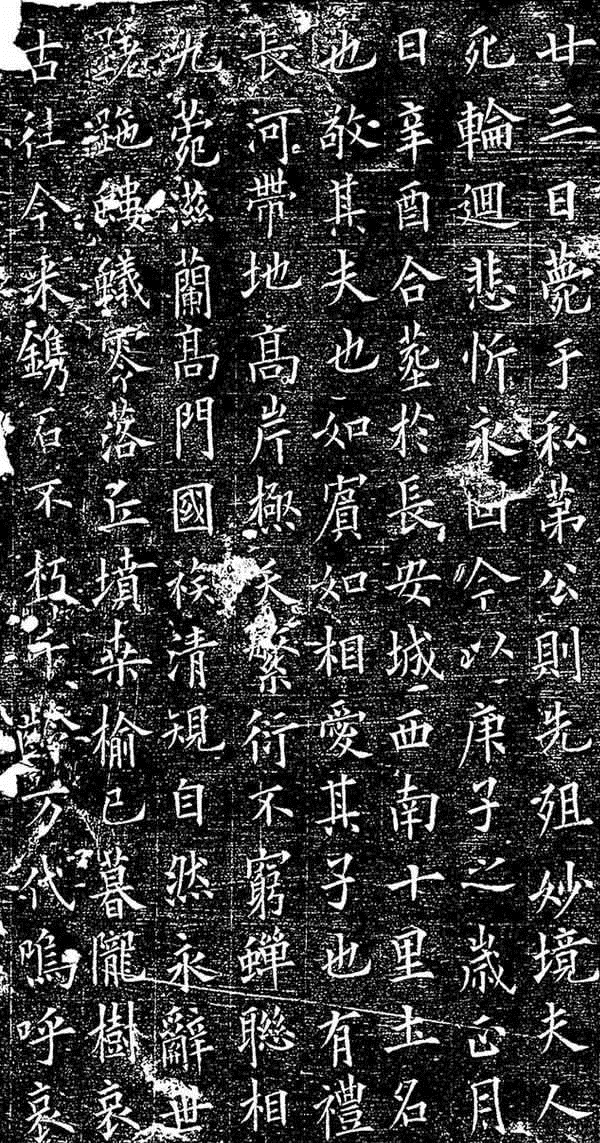 廿三日薨于私第公則先殂妙境夫人
死輪迴悲忻永今以庚子之歲正月
日辛酉合葬於長安城西南十里土名
也敬其夫也如賓如相愛其子也有禮
長河帶地高岸極天繁衍不窮蟬聯相
九菀滋蘭高門國族清規自然永辭世
螻蟻零落丘墳桒榆已暮隴樹哀
古往今来鐫石不朽千齡万代嗚呼哀